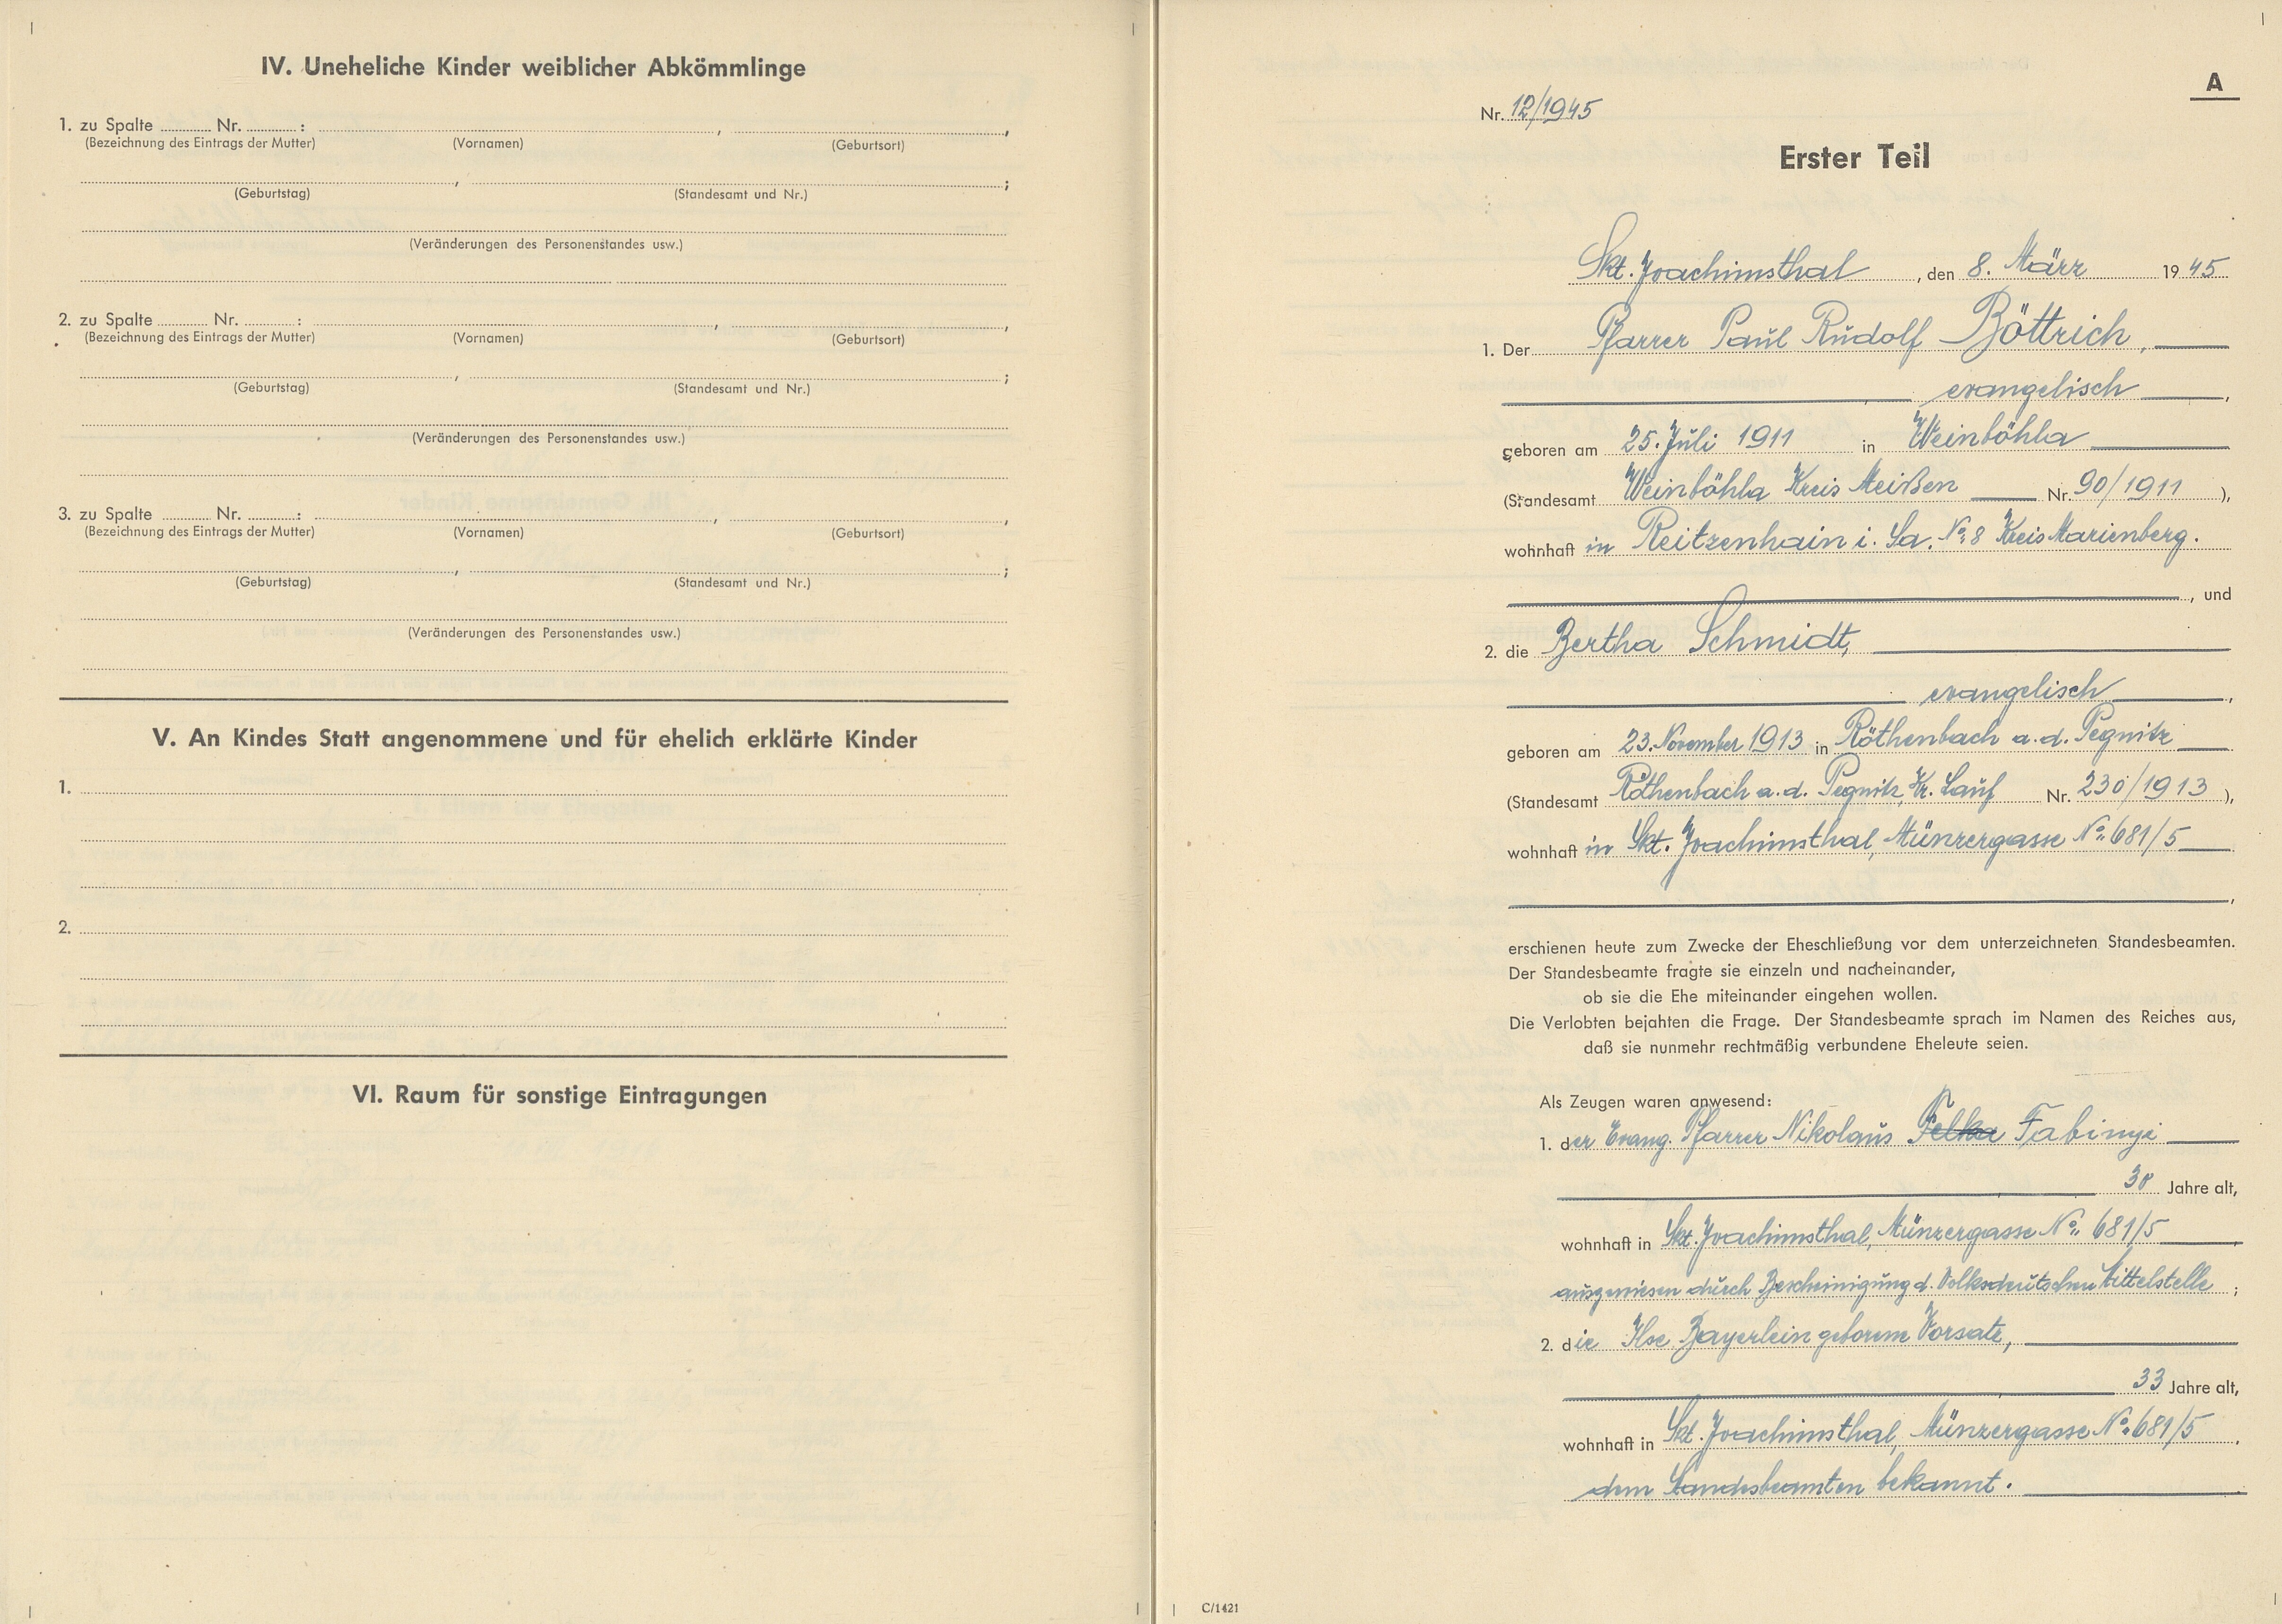 IV. Uneheliche Kinder weiblicher Abkömmlinge
1. zu Spalte ........ Nr. ........ : ........ , ........ ,
(Bezeichnung des Eintrags der Mutter) (Vornamen) (Geburtsort)
........ , ........ ;
(Geburtstag) (Standesamt und Nr.)
(Veränderungen des Personenstandes usw.)
2. zu Spalte ........ Nr. ........ : ........ , ........ ,
(Bezeichnung des Eintrags der Mutter) (Vornamen) (Geburtsort)
........ , ........ ;
(Geburtstag) (Standesamt und Nr.)
(Veränderungen des Personenstandes usw.)
3. zu Spalte ........ Nr. ........ : ........ , ........ ,
(Bezeichnung des Eintrags der Mutter) (Vornamen) (Geburtsort)
........ , ........ ;
(Geburtstag) (Standesamt und Nr.)
(Veränderungen des Personenstandes usw.)
V. An Kindes Statt angenommene und für ehelich erklärte Kinder
1.
2.
VI. Raum für sonstige Eintragungen
A
Nr. 12/1945
Erster Teil
Skt. Joachimsthal, den 8. März 1945
1. Der Pfarrer Paul Rudolf Böttrich,
evangelisch,
geboren am 25. Juli 1911 in Weinböhla
(Standesamt Weinböhla Kreis Meißen Nr. 90/1911 ),
wohnhaft in Reitzenhain i. Sa. No. 8 Kreis Marienberg.
, und
2. die Bertha Schmidt,
evangelisch,
geboren am 23. November 1913 in Röthenbach a. d. Pegnitz
(Standesamt Röthenbach a. d. Pegnitz, Kr. Lauf Nr. 230/1913 ),
wohnhaft in Skt. Joachimsthal, Münzergasse No. 681/5
,
erschienen heute zum Zwecke der Eheschließung vor dem unterzeichneten Standesbeamten.
Der Standesbeamte fragte sie einzeln und nacheinander,
ob sie die Ehe miteinander eingehen wollen.
Die Verlobten bejahten die Frage. Der Standesbeamte sprach im Namen des Reiches aus,
daß sie nunmehr rechtmäßig verbundene Eheleute seien.
Als Zeugen waren anwesend:
1. der Evang. Pfarrer Nikolaus Felka Fabinyi
Jahre alt,
wohnhaft in Skt. Joachimsthal, Münzergasse No. 681/5
ausgewiesen durch Bescheinigung d. Volksdeutschen Mittelstelle ;
2. die Ilse Bayerlein geborene Vorsatz,
33 Jahre alt,
wohnhaft in Skt. Joachimsthal, Münzergasse No. 681/5.
dem Standesbeamten bekannt.
C/1421